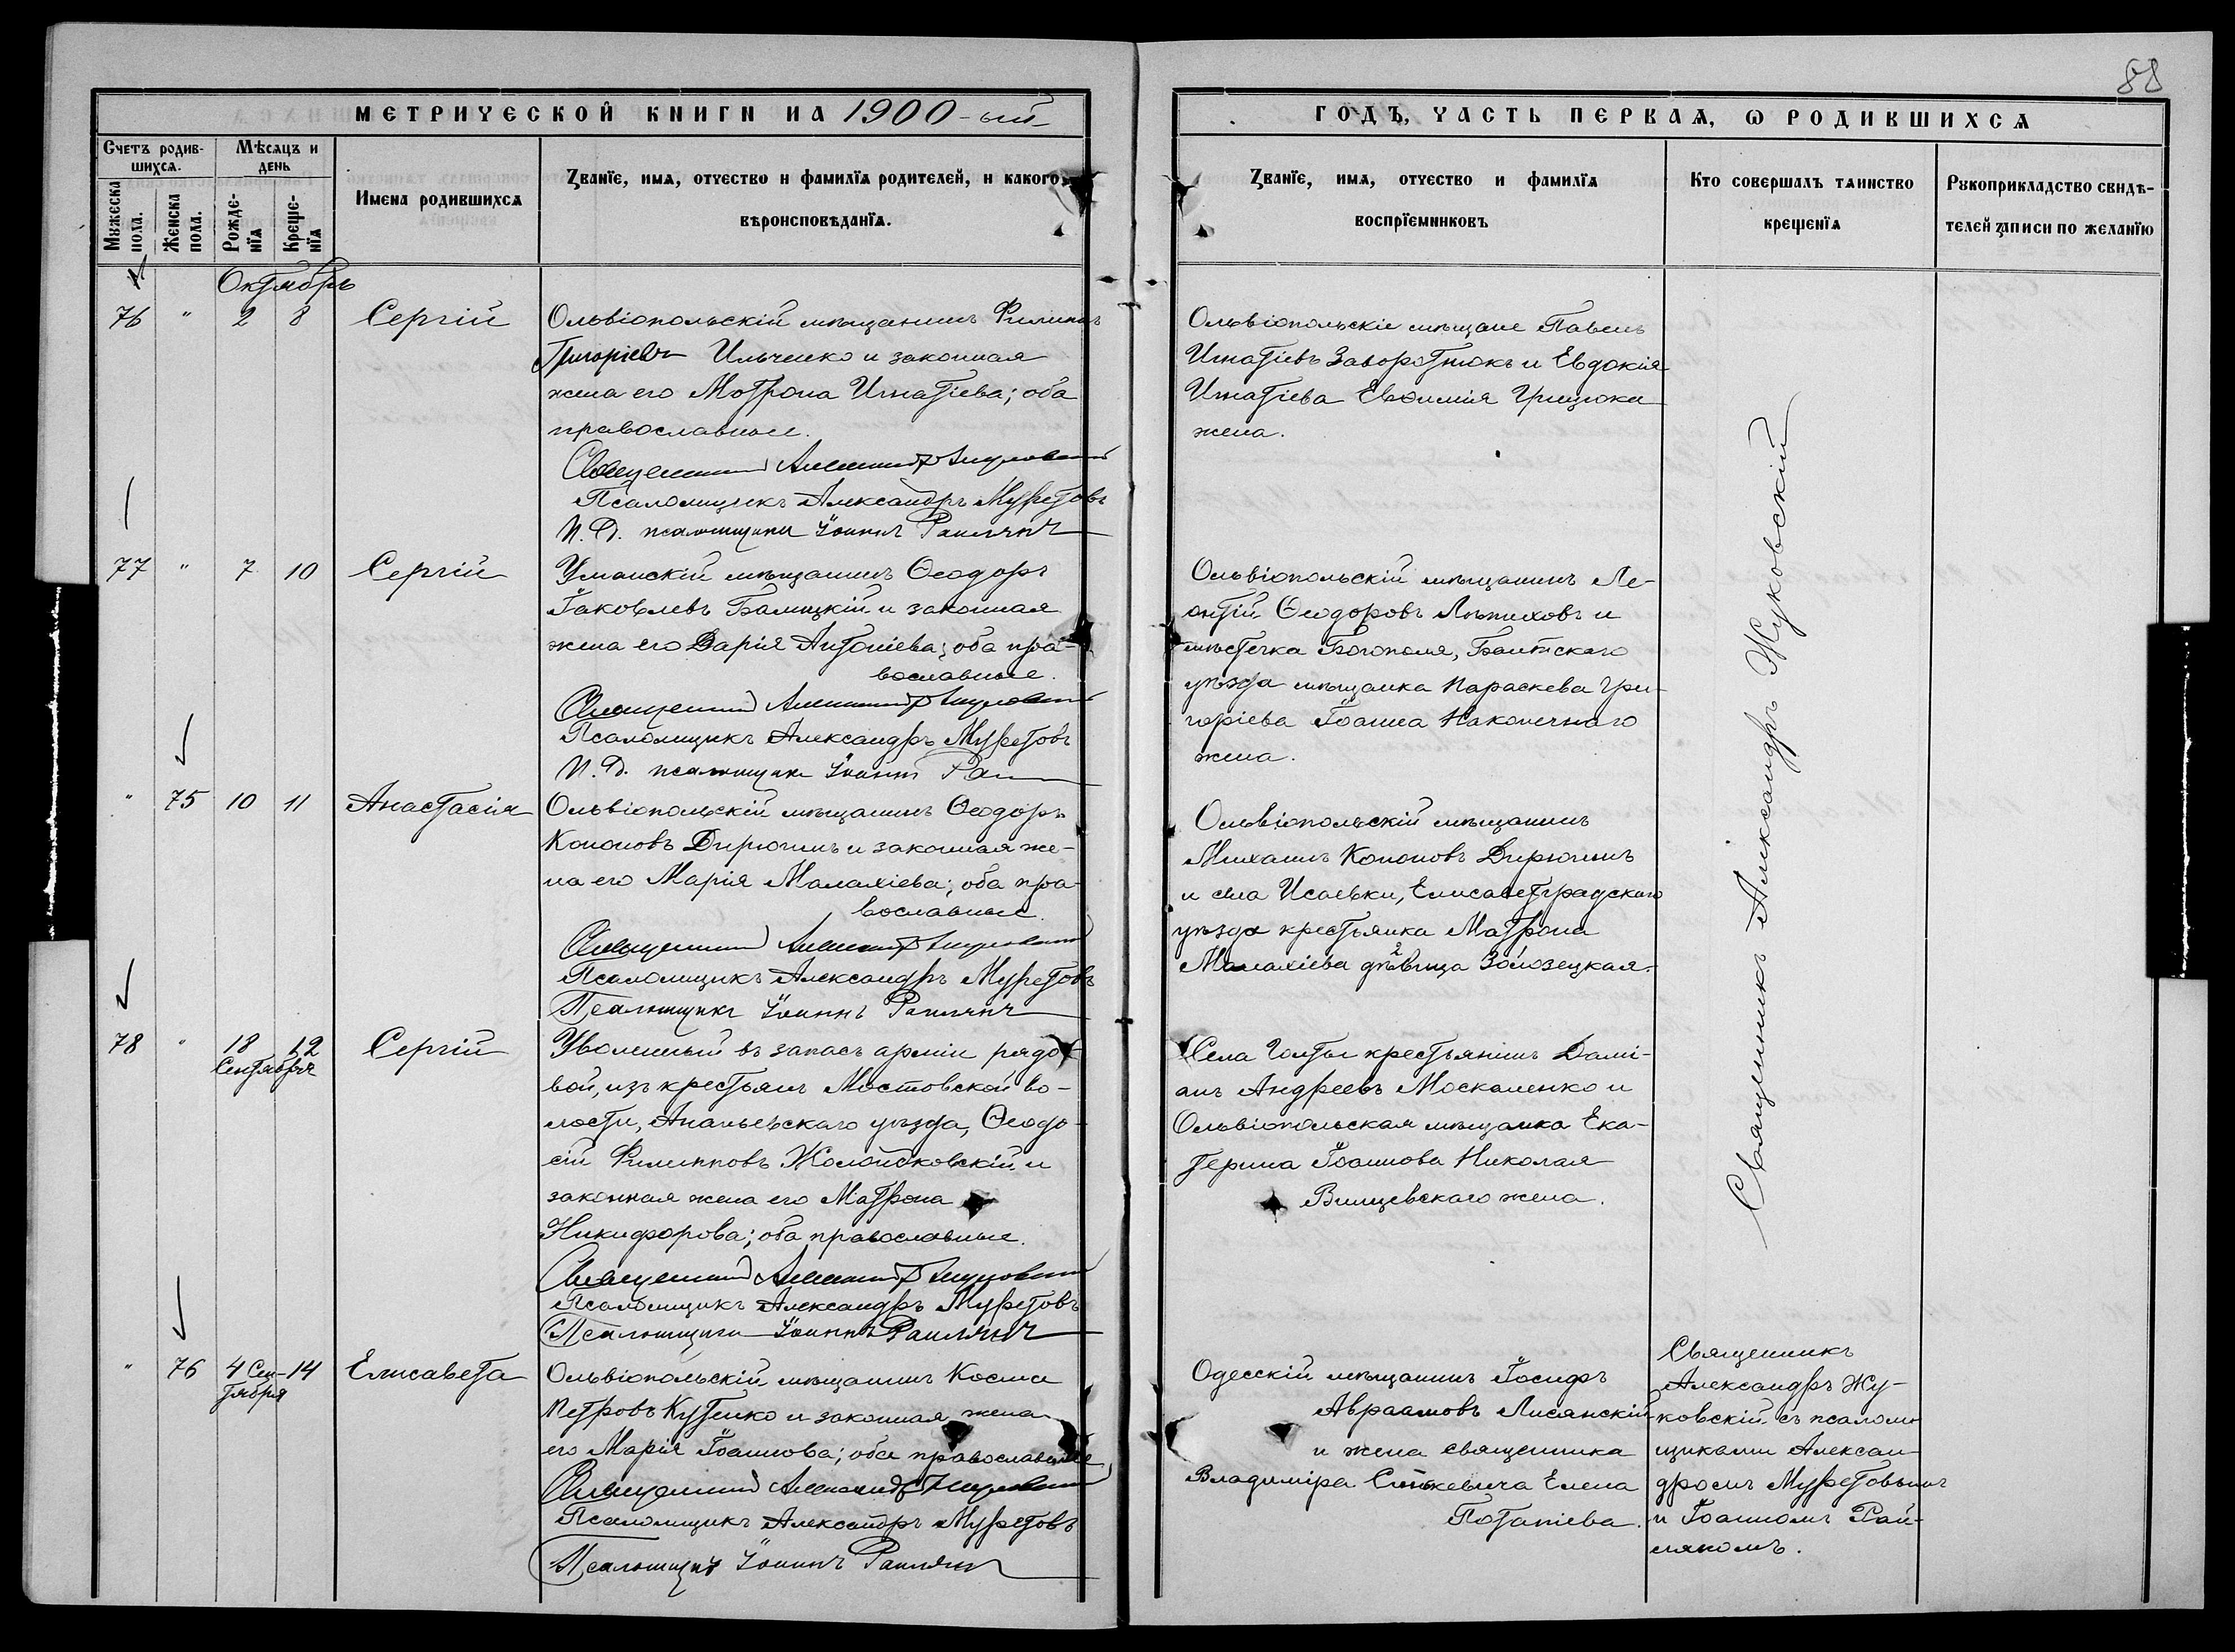 88
МЕТРИЧЕСКОЙ КНИГИ НА 1900-ый
ГОДЪ, ЧАСТЬ ПЕРВАѦ, Ѡ РОДИВШИХСѦ
Счетъ родив-
шихсѧ.
Мѣсѧцъ и
день
Мꙋжеска
пола.
Женска
пола.
Рожде-
нїѧ
Креще-
нїѧ
Имена родившихсѧ
Званїе, имѧ, отчество и фамилїѧ родителей, и какого
вѣроисповѣданїѧ.
Званїе, имѧ, отчество и фамилїѧ
воспрїемниковъ
Кто совершалъ таинство
крещенїѧ
Рꙋкоприкладство свидѣ-
телей записи по желанїю
Октябрь
76 " 2 8 Сергій
Ольвіопольскій мѣщанинъ Филиппъ
Григоріевъ Ильченко и законная
жена его Мотрона Игнатіева; оба
православные.
Священникъ Александръ Жуковскій
Псаломщикъ Александръ Муретовъ
И. Д. псаломщика Іоаннъ Раилянъ
Ольвіопольскіе мѣщане Павелъ
Игнатіевъ Заворотнюкъ и Евдокія
Игнатіева Евфимія Грицюка
жена.
77 " 7 10 Сергій
Уманскій мѣщанинъ Ѳеодоръ
Іаковлевъ Балицкій и законная
жена его Дарія Антоніева; оба пра-
вославные.
Священникъ Александръ Жуковскій
Псаломщикъ Александръ Муретовъ
И. Д. псаломщика Іоаннъ
Ольвіопольскій мѣщанинъ Ле-
онтій Ѳеодоровъ Лѣпиховъ и
мѣстечка Богополя, Балтскаго
уѣзда мѣщанка Параскева Гри-
горіева Іоанна Наконечнаго
жена.
" 75 10 11 Анастасія
Ольвіопольскій мѣщанинъ Ѳеодоръ
Кононовъ Дирючинъ и законная же-
на его Марія Малахіева; оба пра-
вославные.
Священникъ Александръ Жуковскій
Псаломщикъ Александръ Муретовъ
Псаломщикъ Іоаннъ Раилянъ
Ольвіопольскій мѣщанинъ
Михаилъ Кононовъ Дирючинъ
и села Исаевки, Елисаветградскаго
уѣзда крестьянка Матрона
Малахіева дѣвица Золозецкая.
78 " 18 12 Сергій
Сентября
Уволенный въ запасъ арміи рядо-
вой, изъ крестьянъ Мостовской во-
лости, Ананьевскаго уѣзда, Ѳеодо-
сій Филипповъ и
законная жена его Матрона
Никифорова; оба православные.
Священникъ Александръ Жуковскій
Псаломщикъ Александръ Муретовъ
Псаломщикъ Іоаннъ Раилянъ
Села Голты крестьянинъ Дамі-
анъ Андреевъ Москаленко и
Ольвіопольская мѣщанка Ека-
терина Іоаннова Николая
Вишневскаго жена.
Священникъ Александръ Жуковскій
" 76 4 Сен- 14 Елисавета
тября
Ольвіопольскій мѣщанинъ Косма
Петровъ Кутенко и законная жена
его Марія Іоаннова; оба православные
Священникъ Александръ Жуковскій
Псаломщикъ Александръ Муретовъ
Псаломщикъ Іоаннъ Раилянъ
Одесскій мѣщанинъ Іосифъ
Авраамовъ Лисянскій
и жена священника
Владиміра Елена
Потапіева.
Священникъ
Александръ Жу-
ковскій съ псалом-
щиками Алексан-
дромъ Муретовымъ
и Іоанномъ Раи-
ляномъ.